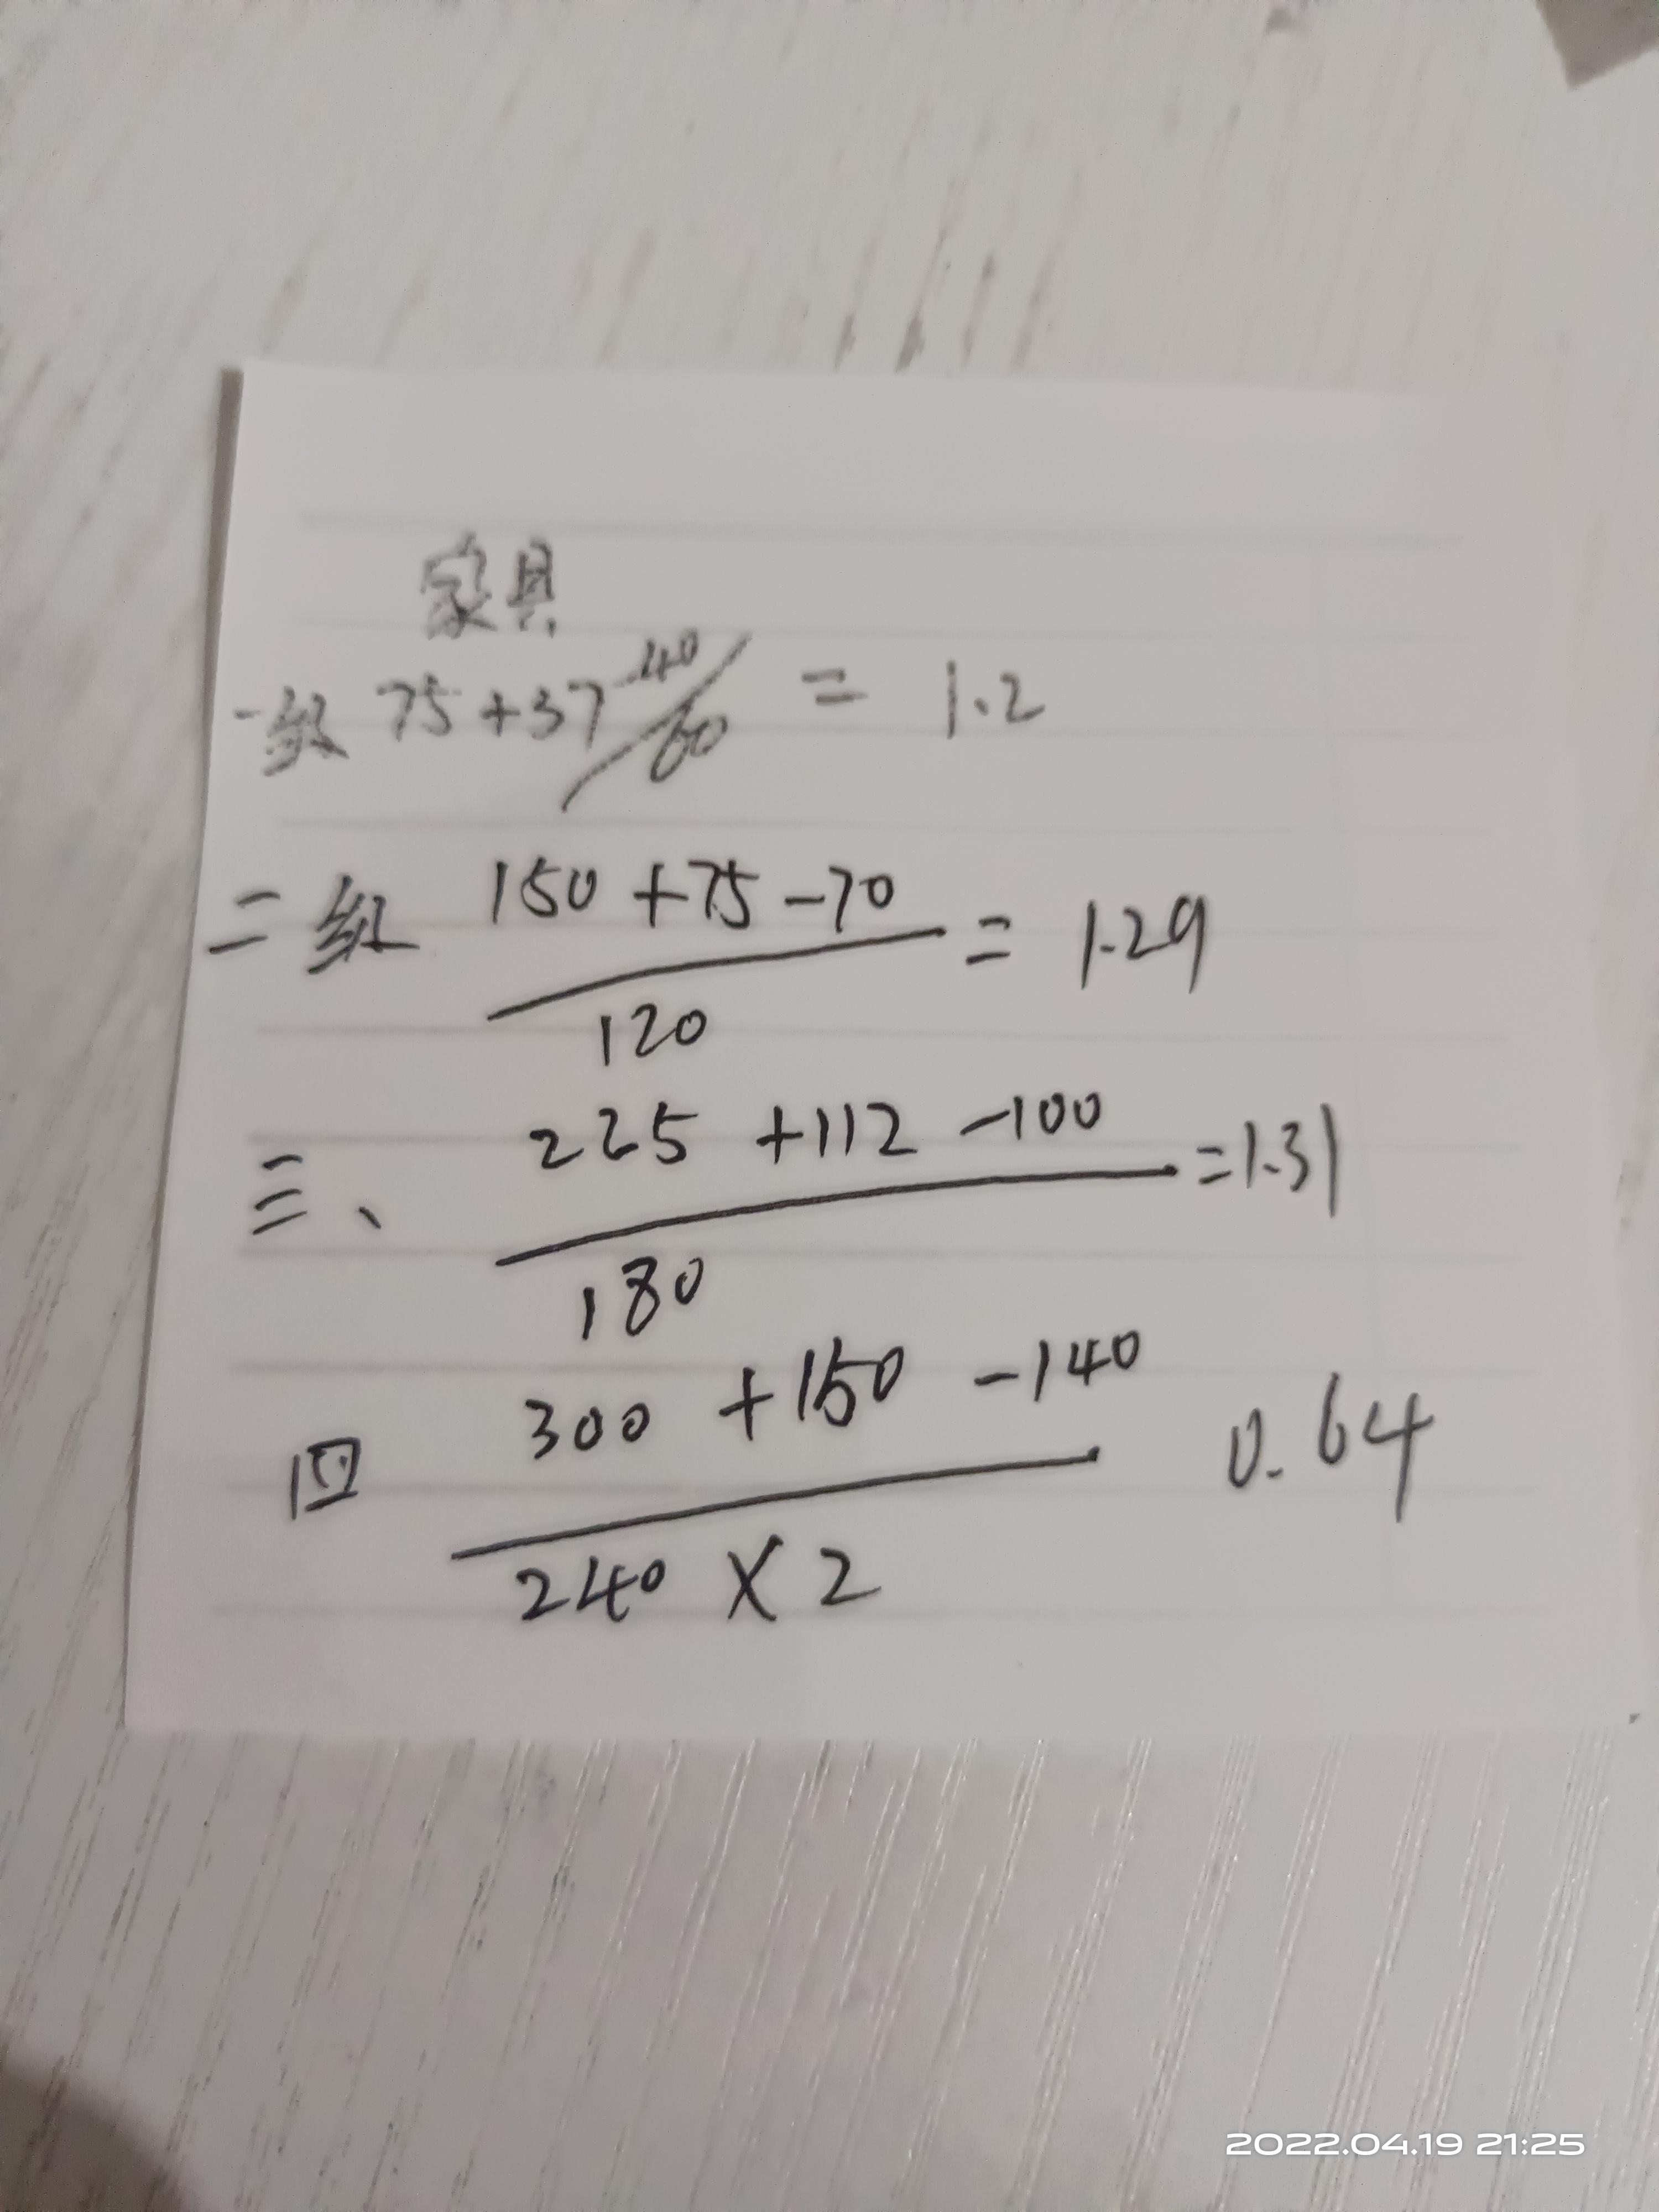 家具
一级 75+37-40/60 = 1.2
二级 150+75-70/120 = 1.29
三、 225+112-100/180 =1.31
四 300+150-140/240×2 0.64
2022.04.19 21:25